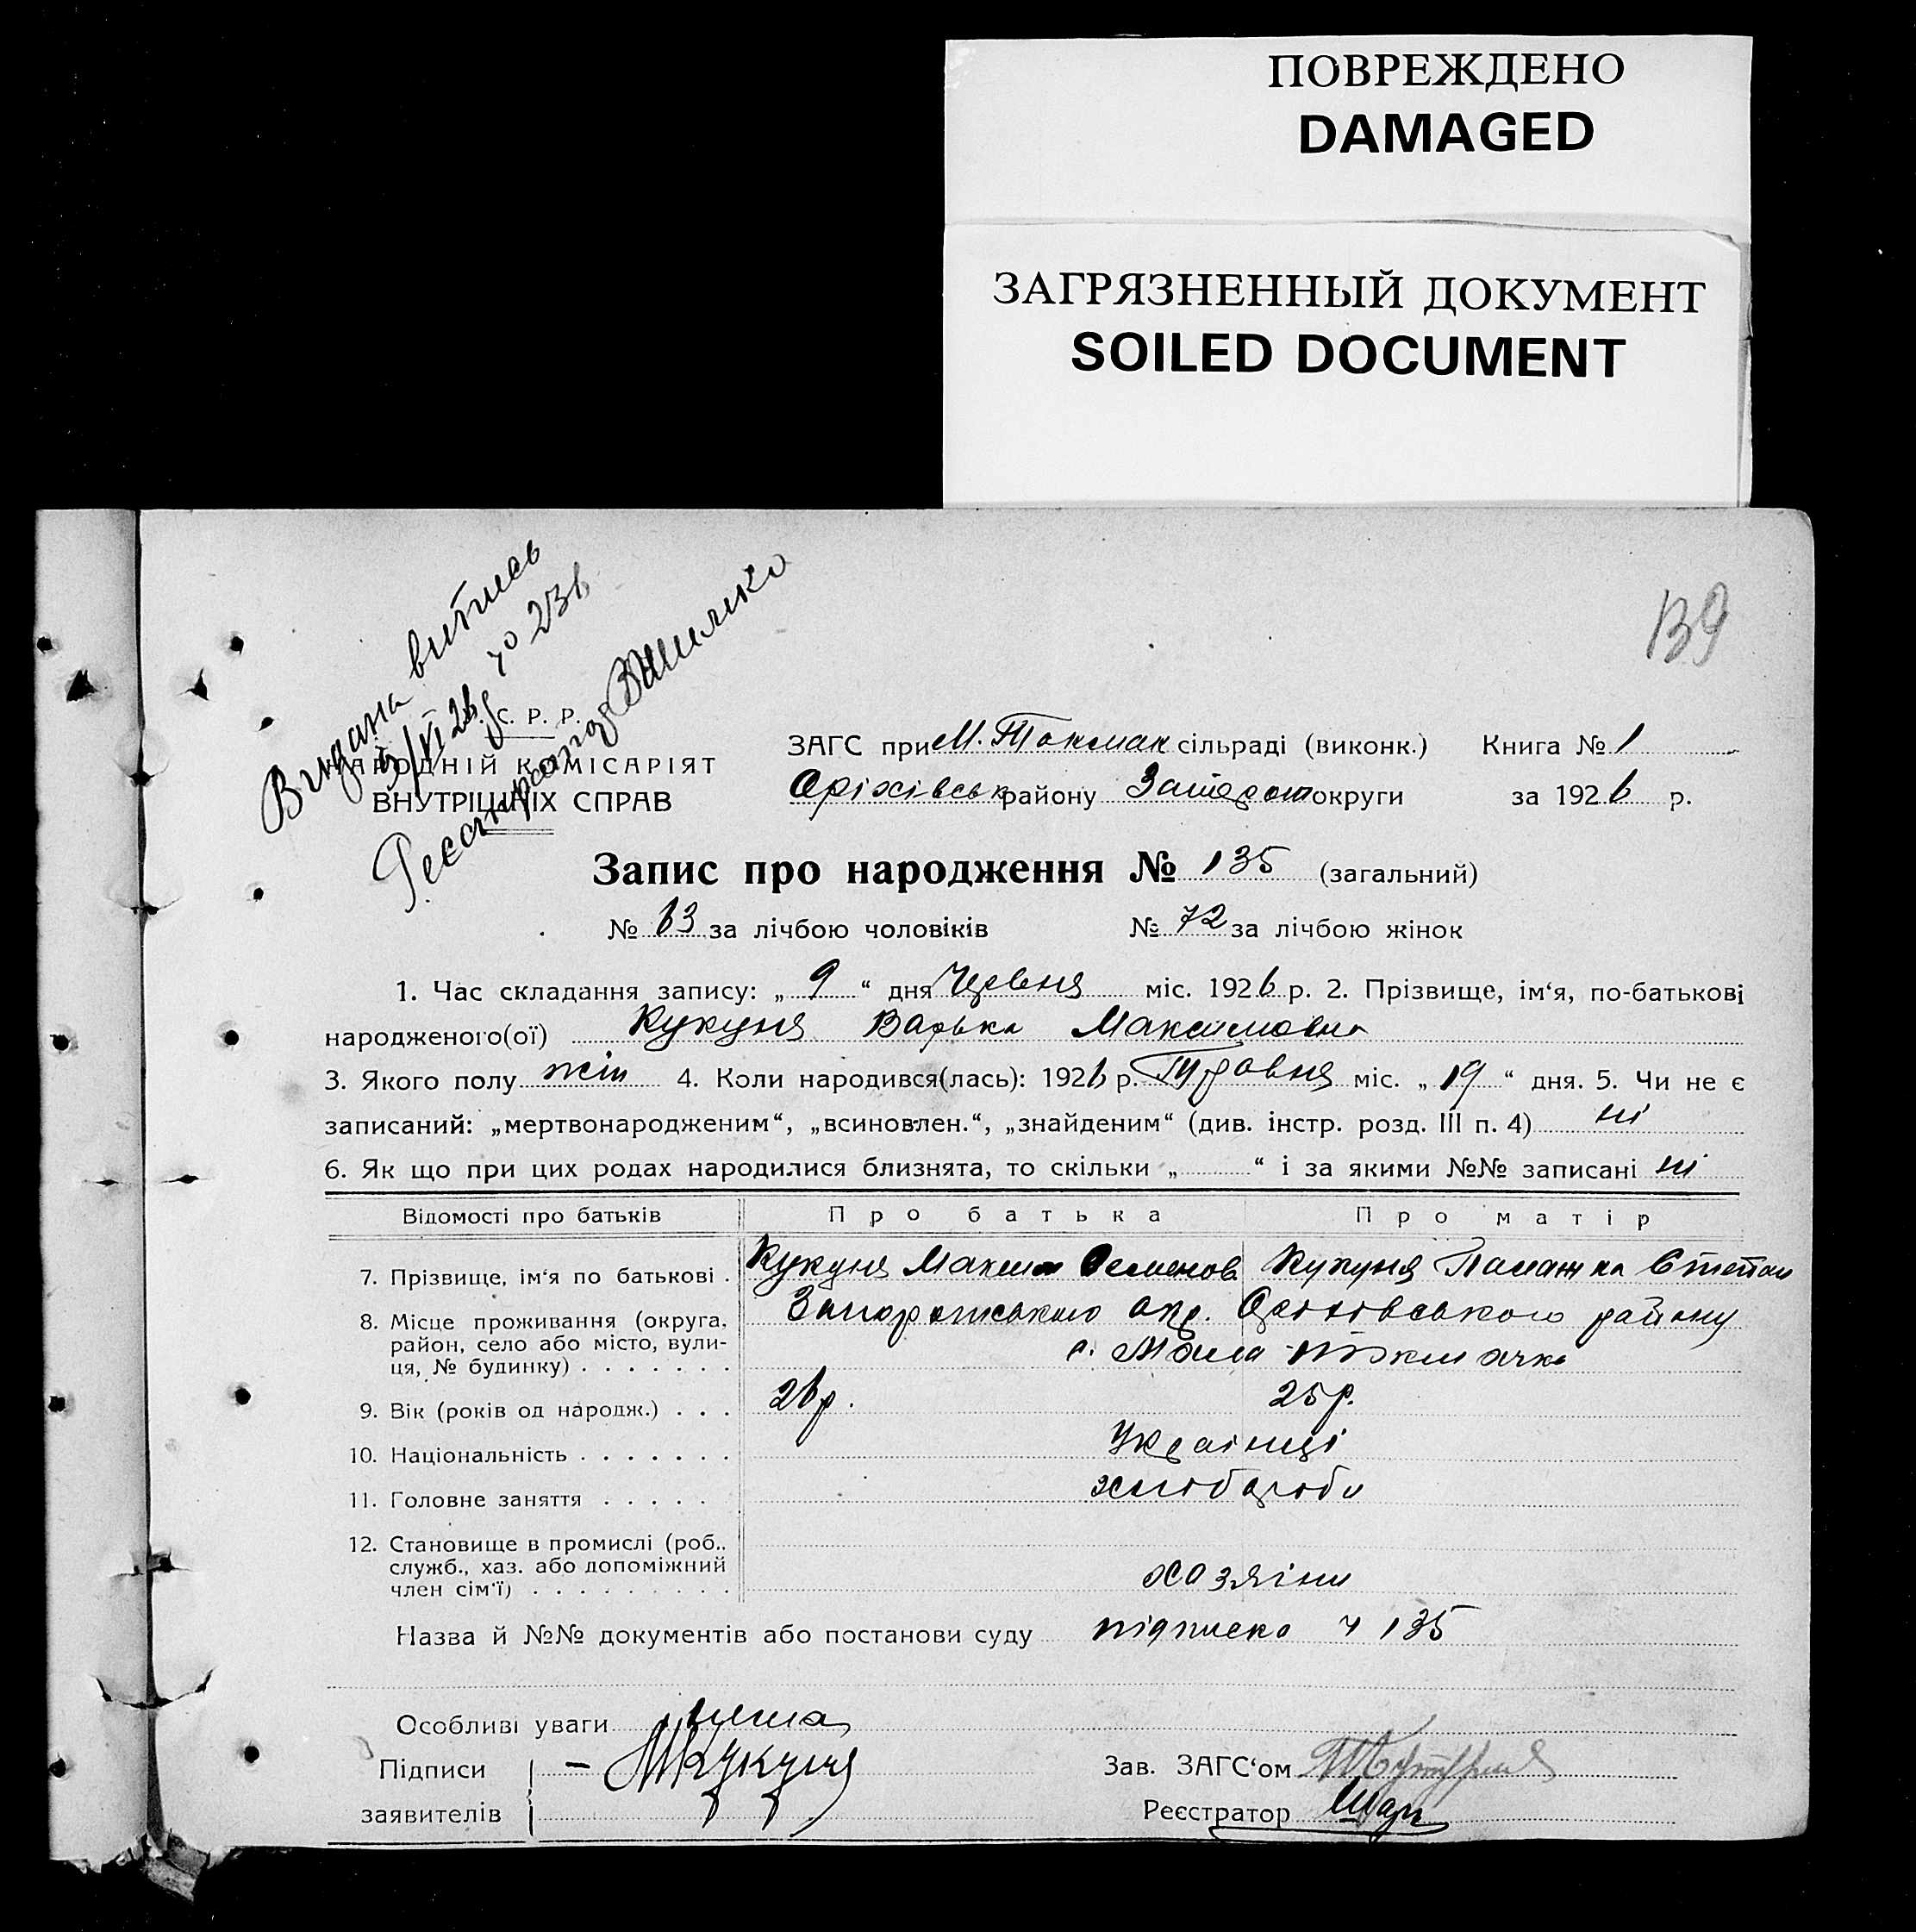 ПОВРЕЖДЕНО
DAMAGED
ЗАГРЯЗНЕННЫЙ ДОКУМЕНТ
SOILED DOCUMENT
139
Видана витпсь
9/VI 26 ч 231
Реєстратор
С. Р. Р.
НАРОДНІЙ КОМІСАРІЯТ
ВНУТРІШНІХ СПРАВ
ЗАГС при М. Токмак сільраді (виконк.) Книга № 1
Оріхівськ району Запорож округи за 1926 р.
Запис про народження № 135 (загальний)
№ 63 за лічбою чоловіків № 72 за лічбою жінок
1. Час складання запису: „ 9 “ дня Червня міс. 1926 р. 2. Прізвище, ім‘я, по-батькові
народженого(ої) Кукуня Варька Максимовна
3. Якого полу жін 4. Коли народився(лась): 1926 р. Травня міс. „ 19 “ дня. 5. Чи не є
записаний: „мертвонародженим“, „всиновлен.“, „знайденим“ (див. інстр. розд. III п. 4) ні
6. Як що при цих родах народилися близнята, то скільки „ “ і за якими №№ записані ні
Відомості про батьків Про батька Про матір
7. Прізвище, ім‘я по батькові . Кукуня Максим Семенов Кукуня Палажка Степан
8. Місце проживання (округа, Запорожського окр. Оріхівського району
район, село або місто, вули- с. Мала Токмачка
ця, № будинку) . . . . . . .
9. Вік (років од народж.) . . . 26 р. 25 р.
10. Національність . . . . . . . Українці
11. Головне заняття . . . . . хлібороби
12. Становище в промислі (роб.,
служб., хаз. або допоміжний
член сім‘ї) . . . . . . . . . хозяіни
Назва й №№ документів або постанови суду підписка ч 135
Особливі уваги нема
Підписи – МКукуня Зав. ЗАГС‘ом
заявителів Реєстратор